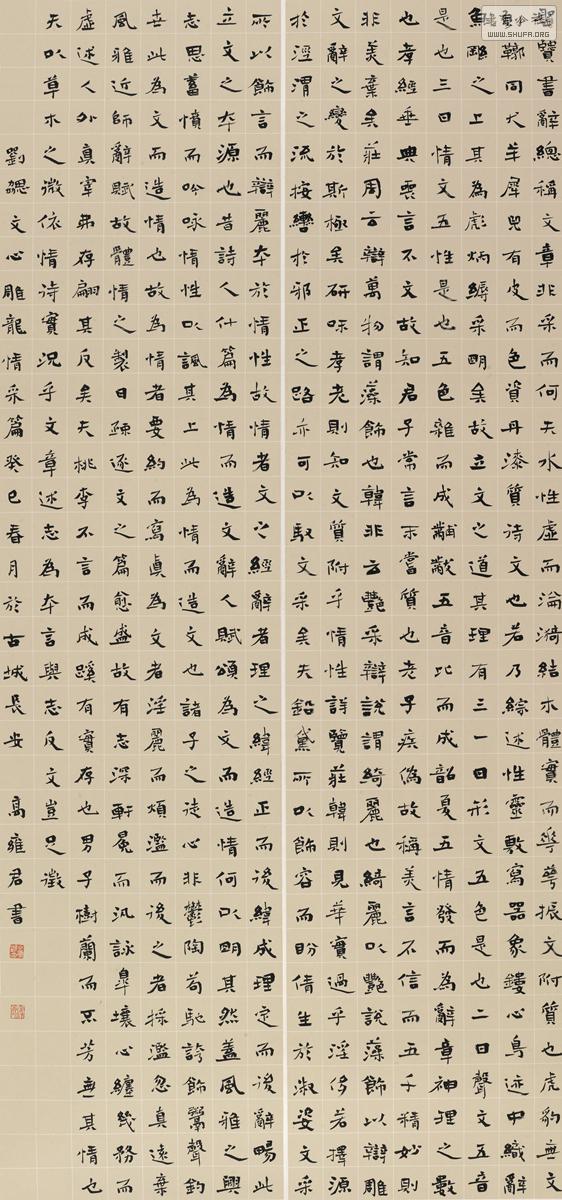 聖賢書辭總稱文章非采而何夫水性虛而淪漪結木體實而華萼振文附質也虎豹無文
鞹同犬羊犀兕有皮而色資丹漆質待文也若乃綜述性靈敷寫器象鏤心鳥迹中織辭
魚網之上其為彪炳縟采明矣故立文之道其理有三一曰形文五色是也二曰聲文五音
是也三曰情文五性是也五色雜而成黼黻五音比而成韶夏五情發而為辭章神理之數
也孝經垂典喪言不文故知君子常言未嘗質也老子疾偽故稱美言不信而五千精妙則
非美棄矣莊周云辯萬物謂藻飾也韓非云艷采辯說謂綺麗也綺麗以艷說藻飾以辯雕
文辭之變於斯極矣研味孝老則知文質附乎情性詳覽莊韓則見華實過乎淫侈若擇源
於涇渭之流按轡於邪正之路亦可以馭文采矣夫鉛黛所以飾容而盼倩生於淑姿文采
所以飾言而辯麗本於情性故情者文之經辭者理之緯經正而後緯成理定而後辭暢此
立文之本源也昔詩人什篇為情而造文辭人賦頌為文而造情何以明其然蓋風雅之興
志思蓄憤而吟詠情性以諷其上此為情而造文也諸子之徒心非鬱陶苟馳誇飾鬻聲釣
世此為文而造情也故為情者要約而寫真為文者淫麗而煩濫而後之者採濫忽真遠棄
風雅近師辭賦故體情之製日疎逐文之篇愈盛故有志深軒冕而汎詠皋壤心纏幾務而
虛述人外真宰弗存翩其反矣夫桃李不言而成蹊有實存也男子樹蘭而不芳無其情也
夫以草木之微依情待實況乎文章述志為本言與志反文豈足徵
劉勰文心雕龍情采篇癸巳春月於古城長安 高雍君書
WWW.SHUFA.ORG